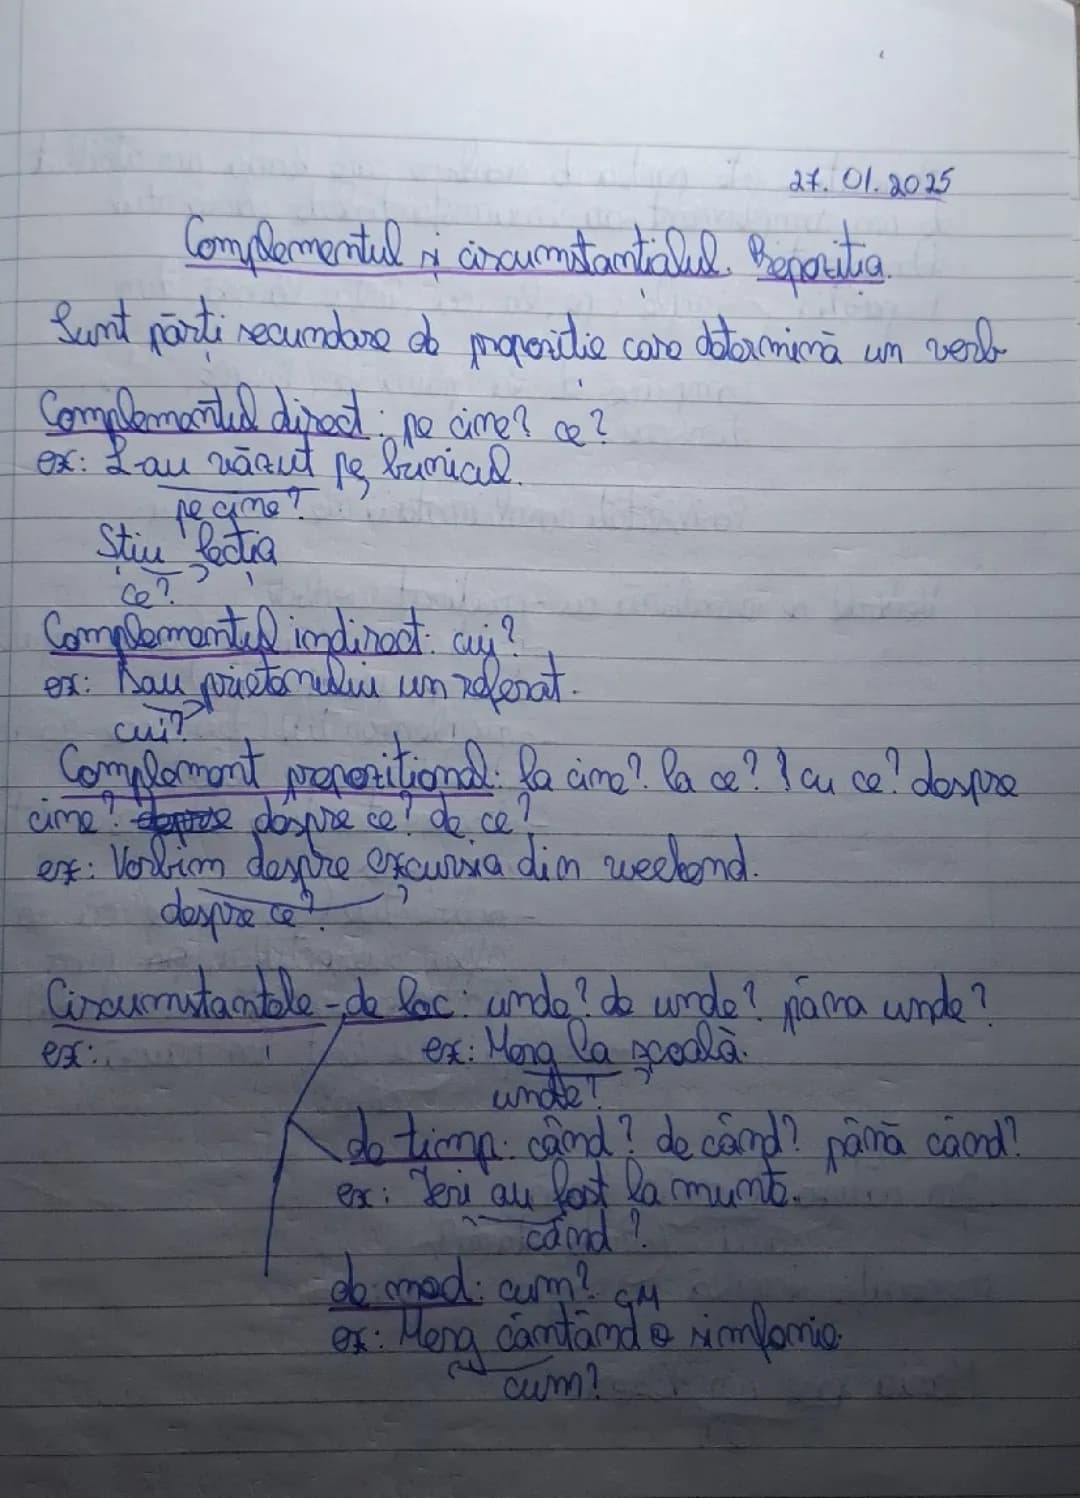 27.01.2025
Complementul și circumstanțialul. Prepoziția.
Sunt părți secundare de propoziție care determină un verb
Complementul direct: pe cine? ce?
ex: L-au văzut pe bunicul.
pe cine?
Știu lecția
ce?
Complementul indirect: cui?
ex: Dau prietenului un referat.
cui?
Complement prepozițional: la cine? la ce? cu ce? despre
cine? despre ce? de ce?
ex: Vorbim despre excursia din weekend.
despre ce?
Circumstanțele - de loc: unde? de unde? până unde?
ex: ex: Merg la școală.
unde?
de timp: când? de când? până când?
ex: Ieri au fost la munte.
când?
de mod: cum? GM
ex: Merg cântând o simfonie.
cum?